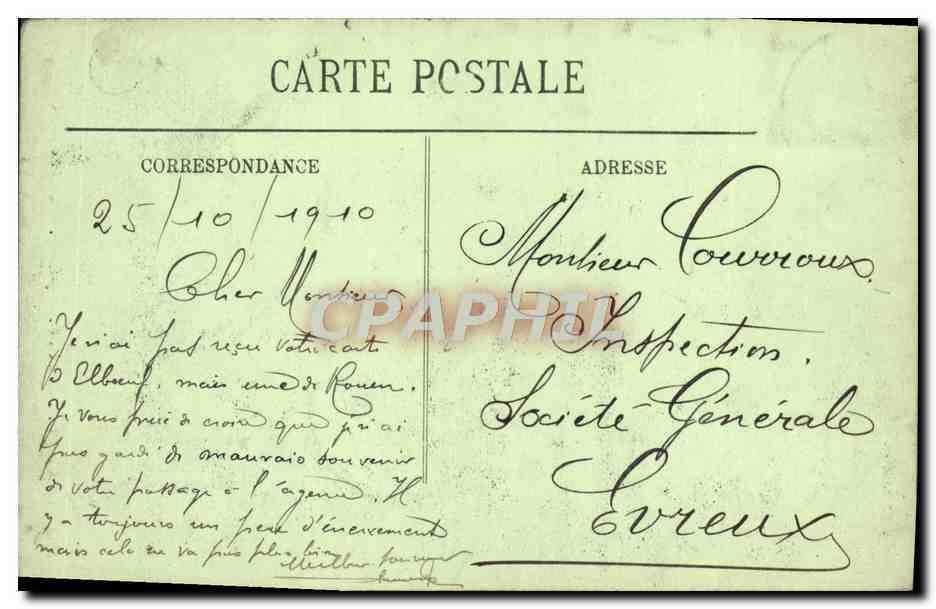 CARTE POSTALE
CORRESPONDANCE
25/10/1910
Cher Monsieur
Je n'ai pas reçu votre carte
d'Elbeuf, mais une de Rouen.
Je vous prie de croire que je n'ai
pas gardé de mauvais souvenir
de votre passage à l'agence. Il
y a toujours un peu d'énervement
mais cela ne va pas plus loin
Meilleur souvenir
ADRESSE
Monsieur Courroux
Inspection.
Société Générale
Evreux
CPAPHIL